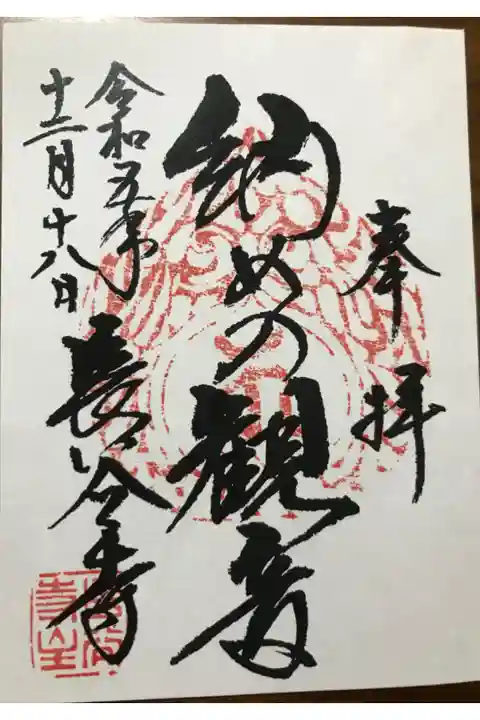 奉拝
納めの観音
令和五年
十二月十八日
長谷寺